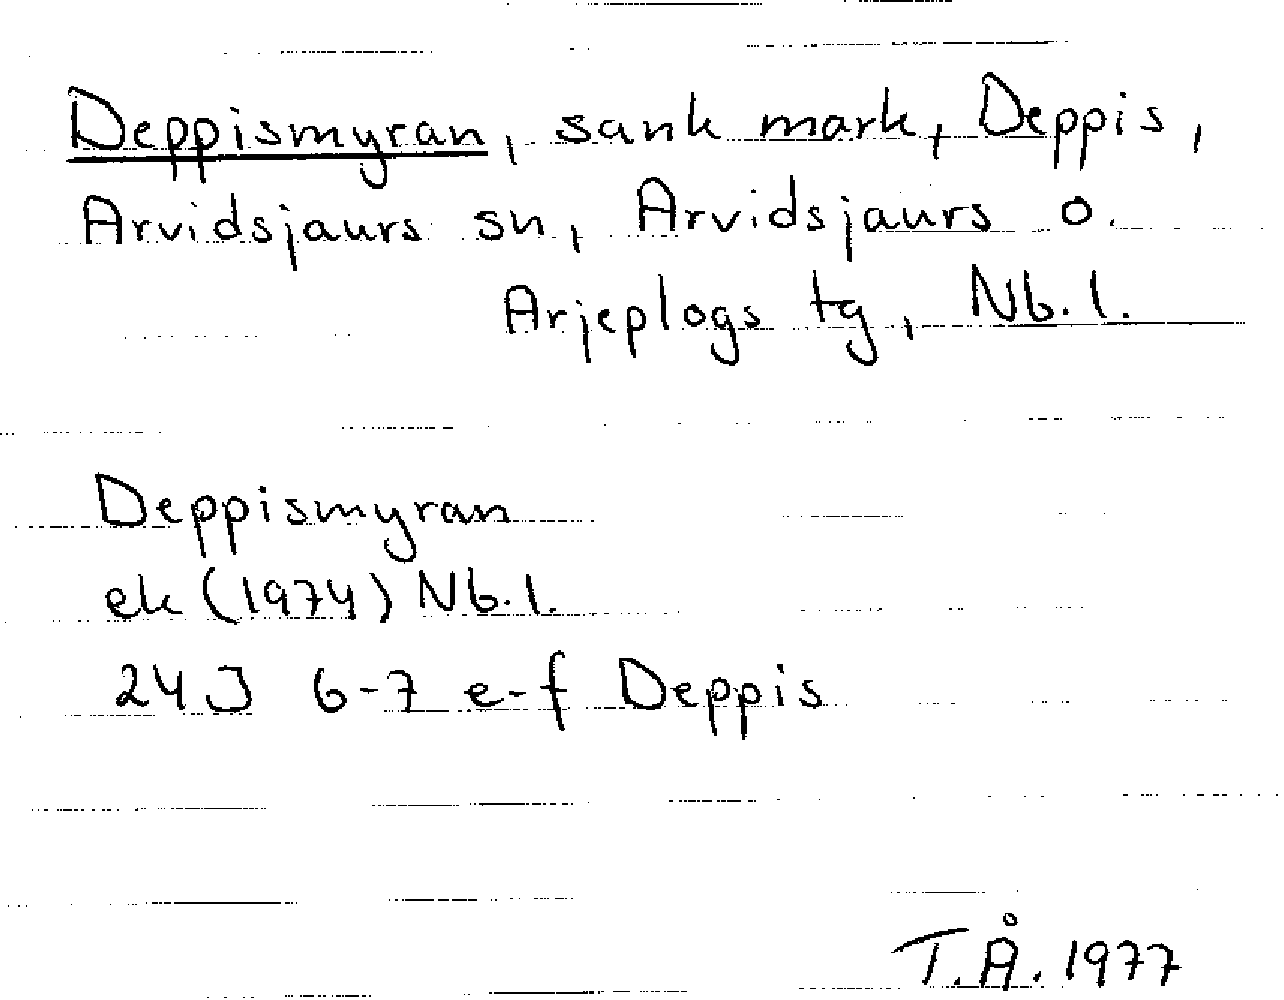 Deppismyran, sank mark, Deppis,
Arvidsjaurs sn, Arvidsjaurs o.
Arjeplogs tg, Nb.l.
Deppismyran
ek (1974) Nb.l.
24J 6-7 e-f Deppis
T.Å. 1977